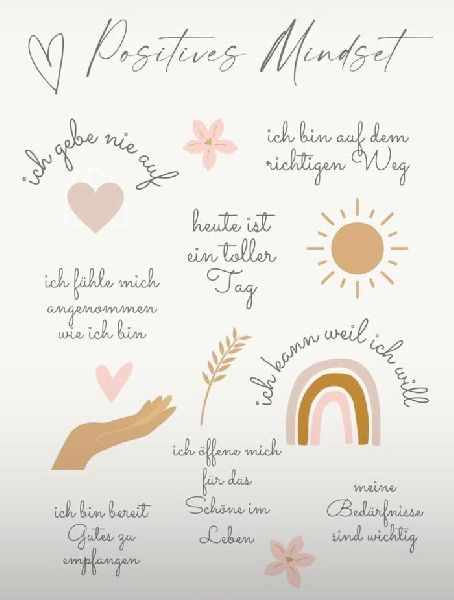 Positives Mindset
ich gebe nie auf
ich bin auf dem
richtigen Weg
heute ist
ein toller
Tag
ich fühle mich
angenommen
wie ich bin
ich kann weil ich will
ich öffene mich
für das
Schöne im
Leben
ich bin bereit
Gutes zu
empfangen
meine
Bedürfnisse
sind wichtig